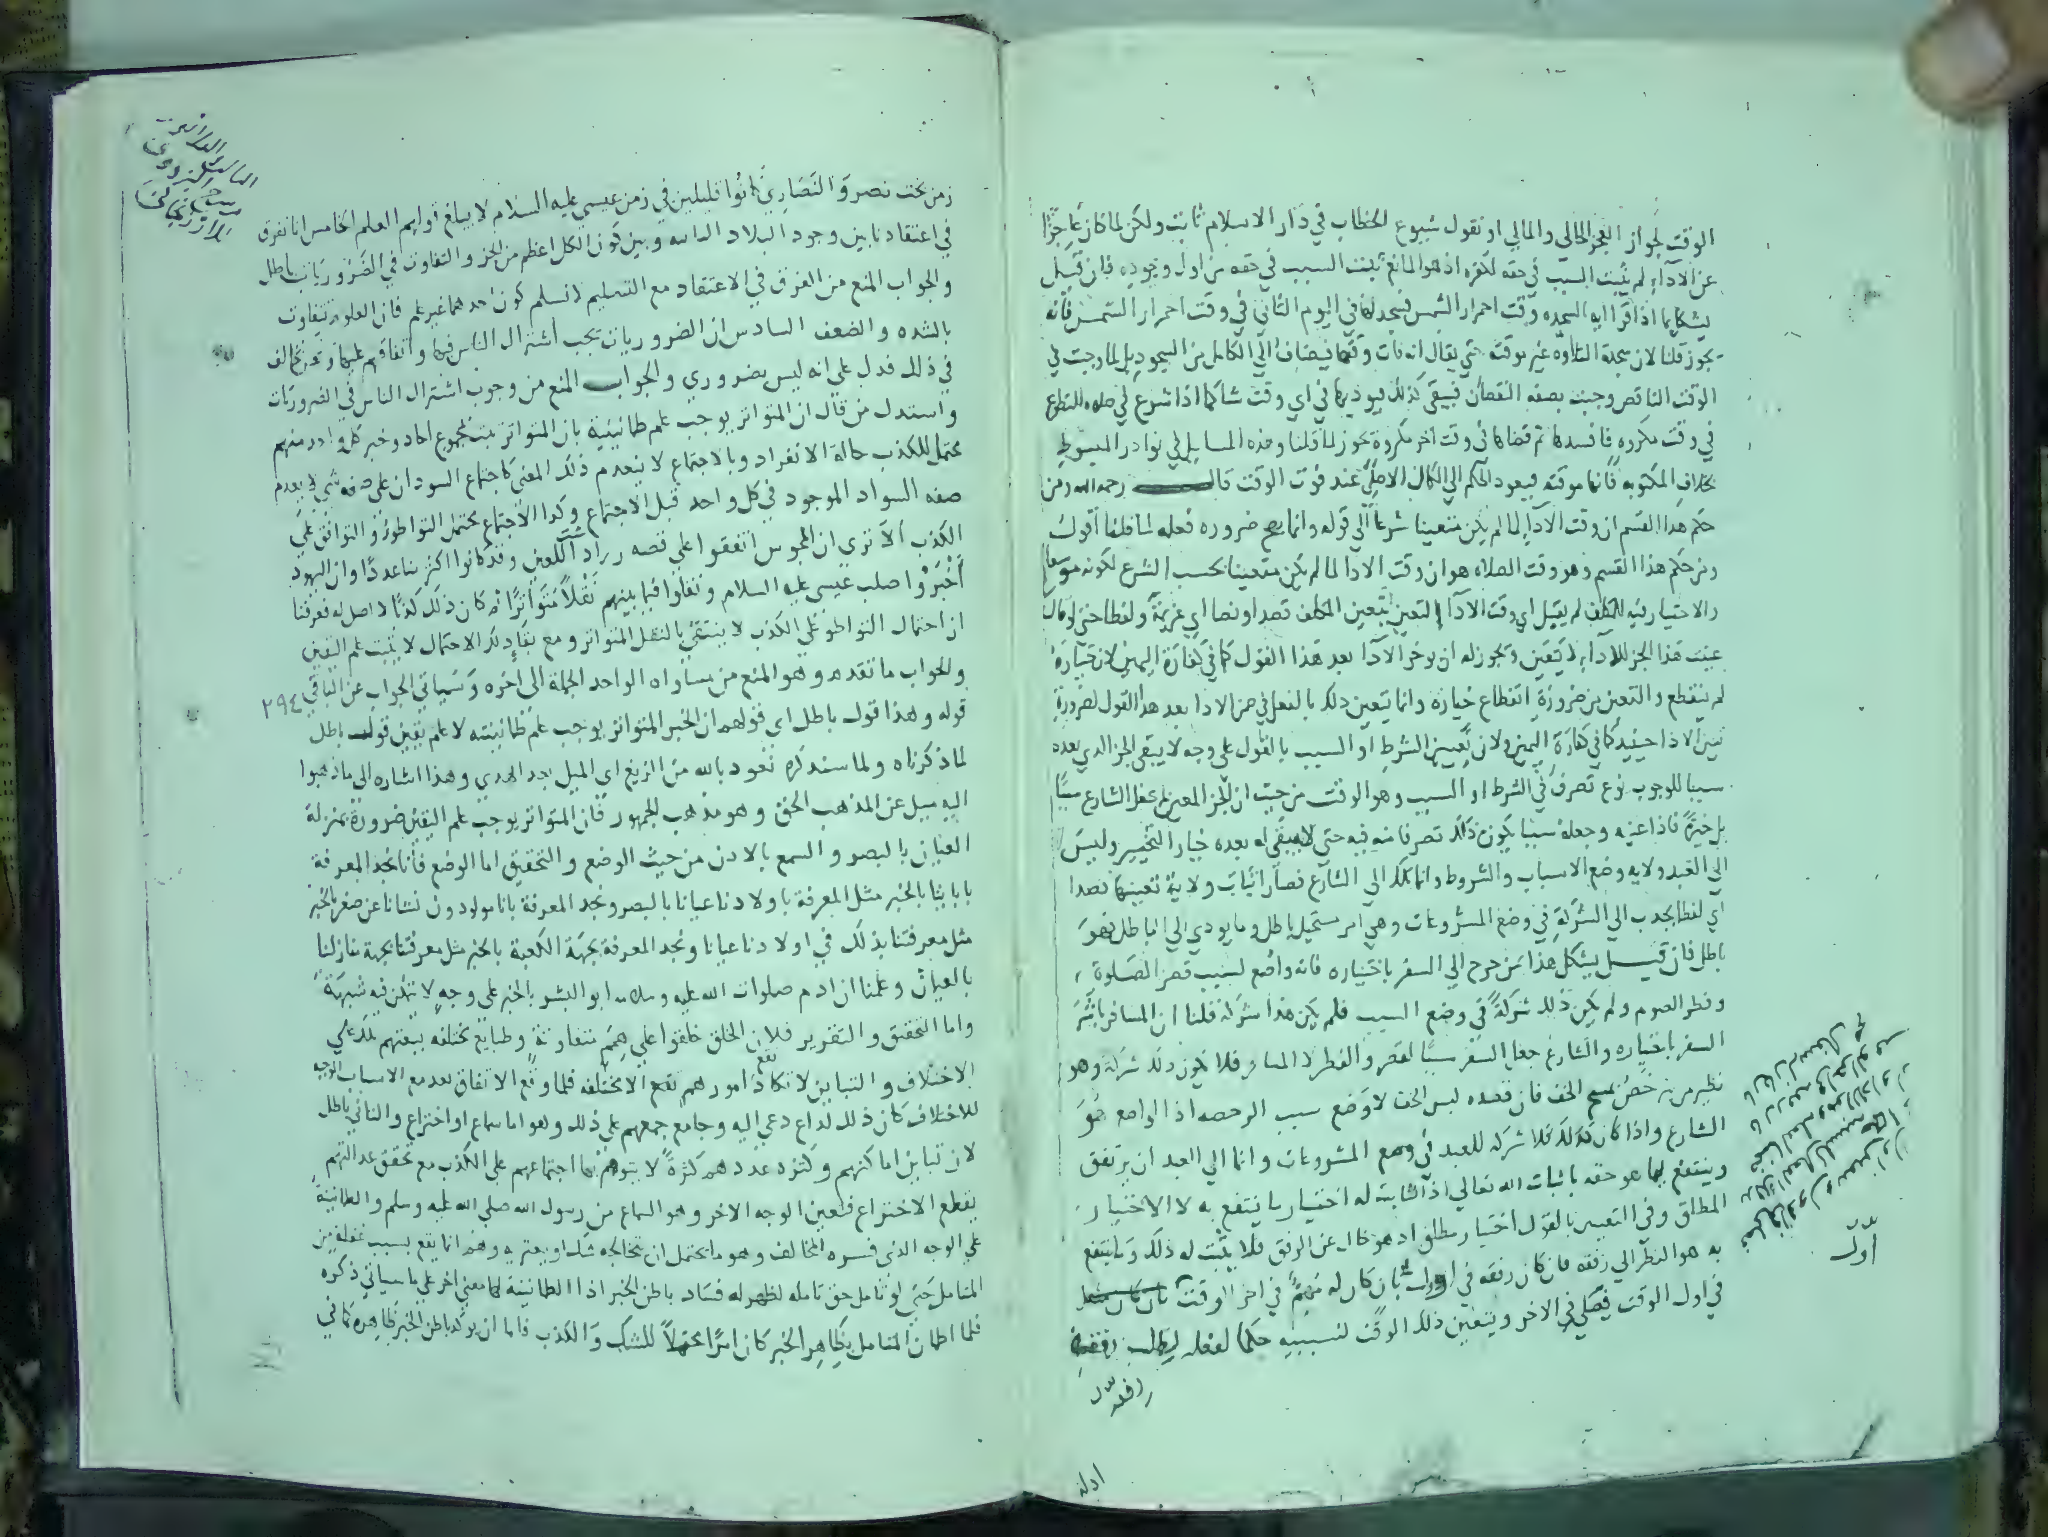 الوقت لجواز العجز الحالي والمالي او نقول شيوع الخطاب في دار الاسلام ثابت ولكن لما كان عاجزا
عن الاداء لم يثبت السبب في حقه لكفره اذ هو المانع يثبت السبب في حقه من اول وجوده فان قيل
يشكل بما اذا قرا اية السجدة وقت احمرار الشمس فسجد لها في اليوم الثاني في وقت احمرار الشمس فانه
يجوز قلنا لان سجدة التلاوة غير موقته حتى يقال انه فات وقتها فيضاف الى الكامل من السجود بل لما وجبت في
الوقت الناقص وجبت بصفة النقصان فيبقى كذلك فيوديها في اي وقت شا كما اذا شرع في صلوة التطوع
في وقت مكروه فافسدها ثم قضاها في وقت آخر مكروه يجوز لما قلنا وهذه المسايل في نوادر المبسوط
بخلاف المكتوبة فانها موقته فيعود الحكم الى الكمال الاصلي عند فوت الوقت قال رحمه الله ومن
حكم هذا القسم ان وقت الادا لما لم يكن متعينا شرعا الى قوله وانما يصح ضرورة فعله لما قلنا اقول
ومن حكم هذا القسم وهو وقت الصلاة هو ان وقت الادا لما لم يكن متعينا بحسب الشرع لكونه موسعا
والاختيار فيه للمكلف لم يقبل اي وقت الادا التعين بتعيين المكلف قصدا ونصا اي عزيمة ولفظا حتى لو قال
عينت هذا الجز للاداء لا يتعين ويجوز له ان يوخر الادا بعد هذا القول كما في كفارة اليمين لان خياره
لم ينقطع والتعين من ضرورة انقطاع خياره وانما يتعين ذلك بالفعل في ضمن الادا بعد هذا القول لضرورة
تعين الادا حينيذ كما في كفارة اليمين ولان تعيين الشرط او السبب بالقول على وجه لا يبقى الجز الذي بعده
سببا للوجوب نوع تصرف في الشرط او السبب وهو الوقت من حيث ان الجز المعين لم يجعل الشارع سببا
بل خيره فاذا عينه وجعله سببا يكون ذلك تصرفا منه فيه حتى لا يبقى له بعده خيار التخيير وليس
الى العبد ولاية وضع الاسباب والشروط وانما ذلك الى الشارع فصار اثبات ولاية تعيينها قصدا
اي لفظا يجذب الى الشركة في وضع المشروعات وهي امر مستحيل باطل وما يودي الى الباطل فهو
باطل فان قيل يشكل هذا بمن خرج الى السفر باختياره فانه واضع لسبب قصر الصلوة
وفطر الصوم ولم يكن ذلك شركة في وضع السبب فلم يكن هذا شركة قلنا ان المسافر باشر
السفر باختياره والشارع جعل السفر سببا لقصر والفطر لا المسافر فلا يكون ذلك شركة وهو
نظير من ترخص بمسح الخف فان قصده لبس الخف لا وضع سبب الرخصة اذ الواضع هو
الشارع واذا كان كذلك فلا شركة للعبد في وضع المشروعات وانما الى العبد ان يرتفق
وينتفع بما هو حقه باثبات الله تعالى اذ الثابت له اختيار ما ينتفع به لا الاختيار
المطلق وفي التعيين بالقول اختيار مطلق اذ هو خال عن الرفق فلا يثبت له ذلك وما ينتفع
به هو النظر الى رفقه فان كان رفقه في بان كان له مهم في اخر الوقت
في اول الوقت فيصلي في الاخر ويتعين ذلك الوقت لسببيه حكما لفعله لطلب رفقه
رفقه
اول
زمن بخت نصر والنصارى كانوا قليلين في زمن عيسى عليه السلام لا يبلغ قولهم العلم الخامس انا نفرق
في اعتقادنا بين وجود البلاد النائيه وبين كون الكل اعظم من الجز والتفاوت في الضروريات باطل
والجواب المنع من الفرق في الاعتقاد مع التسليم لا نسلم كون احدهما غير علم فان العلوم تتفاوت
بالشده والضعف السادس ان الضروريات يجب اشتراك الناس فيها واتفاقهم عليها ونحن نخالف
في ذلك فدل على انه ليس بضروري والجواب المنع من وجوب اشتراك الناس في الضروريات
واستدل من قال ان المتواتر يوجب علم طمانينة بان المتواتر ثبت بمجموع احاد وخبر كل واحد منهم
محتمل للكذب حالة الانفراد وبالاجتماع لا ينعدم ذلك المعنى كاجتماع السودان على صفه شي لا يعدم
صفه السواد الموجود في كل واحد قبل الاجتماع وكذا الاجتماع يحتمل التواطؤ والتوافق على
الكذب الا ترى ان المجوس اتفقوا على قصه زرادشت اللعين وقد كانوا اكثر منا عددا وان اليهود
اخبروا صلب عيسى عليه السلام ونقلوا فيما بينهم نقلا متواترا ثم كان ذلك كذبا لا اصل له فعرفنا
ان احتمال التواطؤ على الكذب لا ينتفي بالنقل المتواتر ومع بقاء ذلك الاحتمال لا يثبت علم اليقين
والجواب ما تقدم وهو المنع من مساواه الواحد الجملة الى اخره وسياتي الجواب عن الباقي ٢٩٤
قوله وهذا قول باطل اي قولهم ان الخبر المتواتر يوجب علم طمانينه لا علم يقين قول باطل
لما ذكرناه ولما سنذكره نعوذ بالله من الزيغ اي الميل بعد الهدى وهذا اشاره الى ما ذهبوا
اليه ميل عن المذهب الحق وهو مذهب الجمهور فان المتواتر يوجب علم اليقين ضرورة بمنزلة
العيان بالبصر والسمع بالاذن من حيث الوضع والتحقيق اما الوضع فانا نجد المعرفة
بابائنا بالخبر مثل المعرفة باولادنا عيانا بالبصر ونجد المعرفة بانا مولودون نشانا عن صغر بالخبر
مثل معرفتنا بذلك في اولادنا عيانا ونجد المعرفة بجهة الكعبة بالخبر مثل معرفتنا بجهة منازلنا
بالعيان وعلمنا ان ادم صلوات الله عليه وسلامه ابو البشر بالخبر على وجه لا يمكن فيه شبهة
واما التحقيق والتقرير فلان الخلق خلقوا على همم متفاوتة وطبايع مختلفه يبعثهم ذلك على
الاختلاف والتباين لا تكاد تقع امورهم الا مختلفه فلما وقع الاتفاق بعد مع الاسباب الموجبه
للاختلاف كان ذلك لداع دعي اليه وجامع جمعهم على ذلك وهو اما سماع او اختراع والثاني باطل
لان تباين اماكنهم وكثرة عددهم كثرة لا يتوهم بها اجتماعهم على الكذب مع تحقق عدالتهم
يقطع الاختراع فتعين الوجه الاخر وهو السماع من رسول الله صلى الله عليه وسلم والطمانينة
على الوجه الذي فسره المخالف وهو ما يحتمل ان يتخالجه شك او يعتريه وهم انما يقع بسبب غفلة من
المتامل حتى لو تامل حق تامله لظهر له فساد باطن الخبر اذا الطمانينة لها معنى اخر على ما سياتي ذكره
فلما اطمان المتامل بظاهر الخبر كان امرا محتملا للشك والكذب فاما ان يوكد باطن الخبر ظاهره كما في